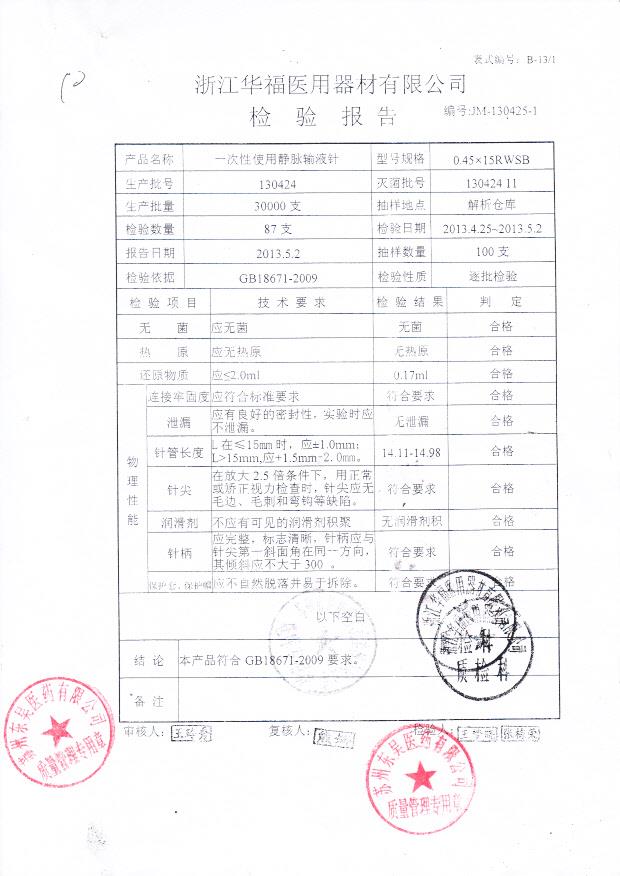 表式编号: B-13/1
浙江华福医用器材有限公司
检 验 报 告
编号:JM-130425-1
产品名称 一次性使用静脉输液针 型号规格 0.45×15RWSB
生产批号 130424 灭菌批号 130424 11
生产批量 30000 支 抽样地点 解析仓库
检验数量 87 支 检验日期 2013.4.25~2013.5.2
报告日期 2013.5.2 抽样数量 100 支
检验依据 GB18671-2009 检验性质 逐批检验
检 验 项 目 技 术 要 求 检 验 结 果 判 定
无 菌 应无菌 无菌 合格
热 原 应无热原 无热原 合格
还原物质 应≤2.0ml 0.17ml 合格
物理性能
连接牢固度 应符合标准要求 符合要求 合格
泄漏 应有良好的密封性，实验时应
不泄漏。 无泄漏 合格
针管长度 L 在≤15mm 时，应±1.0mm;
L>15mm,应+1.5mm-2.0mm。 14.11-14.98 合格
针尖 在放大 2.5 倍条件下，用正常
或矫正视力检查时，针尖应无
毛边、毛刺和弯钩等缺陷。 符合要求 合格
润滑剂 不应有可见的润滑剂积聚 无润滑剂积 合格
针柄 应完整，标志清晰，针柄应与
针尖第一斜面角在同一方向，
其倾斜应不大于 300 。 符合要求 合格
保护套、保护帽 应不自然脱落并易于拆除。 符合要 合格
以下空白
结 论 本产品符合 GB18671-2009 要求。
备 注
审核人: 复核人: 检验人:
浙江华福医用器材有限公司
质检科
苏州东吴医药有限公司
质量管理专用章
苏州东吴医药有限公司
质量管理专用章